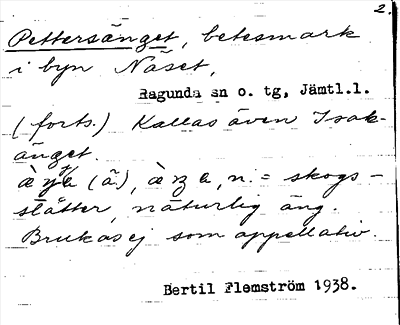 2.
Pettersänget, betesmark
i byn Näset,
Ragunda sn o. tg, Jämtl.l.
(forts.) Kallas även Isak-
änget.
(ä), n. = skogs-
slåtter, naturlig äng.
Brukas ej som appellativ.
Bertil Flemström 1938.